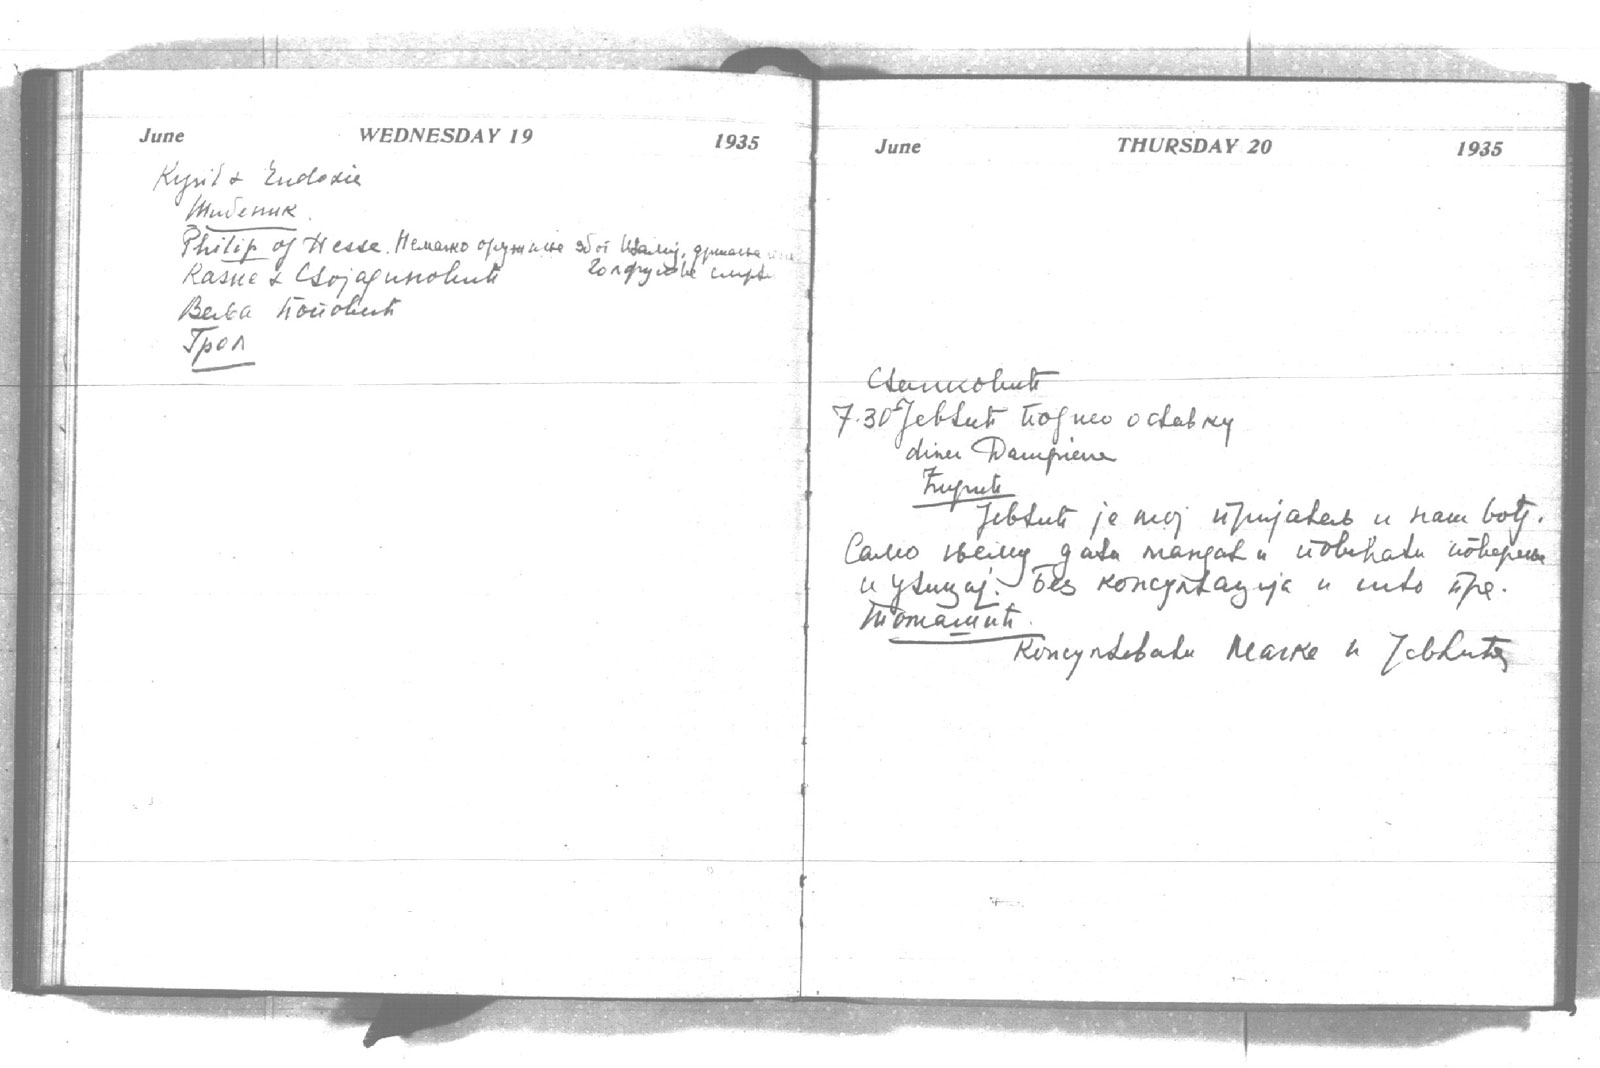 June WEDNESDAY 19 1935
Kyril & Eudoxie
Шибеник
Philip of Hesse. Немачко оружање због
Казне & Стојадиновић
Вељa Поповић
Грол
June THURSDAY 20 1935
Станковић
7.30 Јевтић поднео оставку
diner Dampierre
Ћирић
Јевтић је мој пријатељ и наш вођ.
Само њему дати мандат и повећати поверење
и утицај. Без консултација и што пре.
Томашић.
Консултовати Мачке и Јевтића